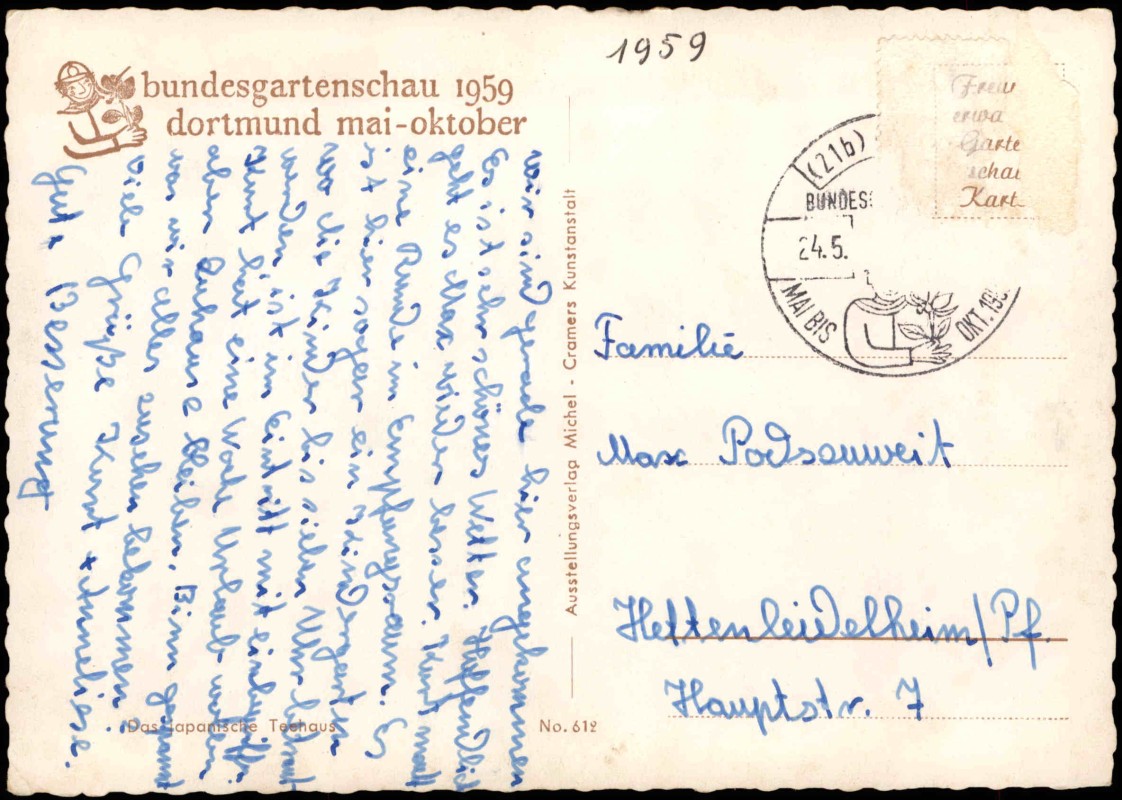 1959
bundesgartenschau 1959
dortmund mai-oktober
wir sind gerade hier angekommen
Es ist sehr schönes Wetter. Hoffendlich
geht es Max wieder besser. Kurt macht
eine Runde im Empfangsraum. Es
ist hier sogar ein Kindergarten
wo die Kinder bis sieben Uhr betreut
werden ist im Eintritt mit einbegriffen.
Kurt hat eine Woche Urlaub wollen
aber zuhause bleiben. Bin gespannt
was wir alles zusehen bekommen.
viele Grüße Kurt + Anneliese.
Gute Besserung
Das Japanische Teehaus
No. 612
Ausstellungsverlag Michel - Cramers Kunstanstalt
(21b)
BUNDES
24.5.
MAI BIS
OKT. 195
Freu
erwa
Garte
schau
Kart
Familie
Max Podsauweit
Hettenleidelheim/Pf.
Hauptstr. 7